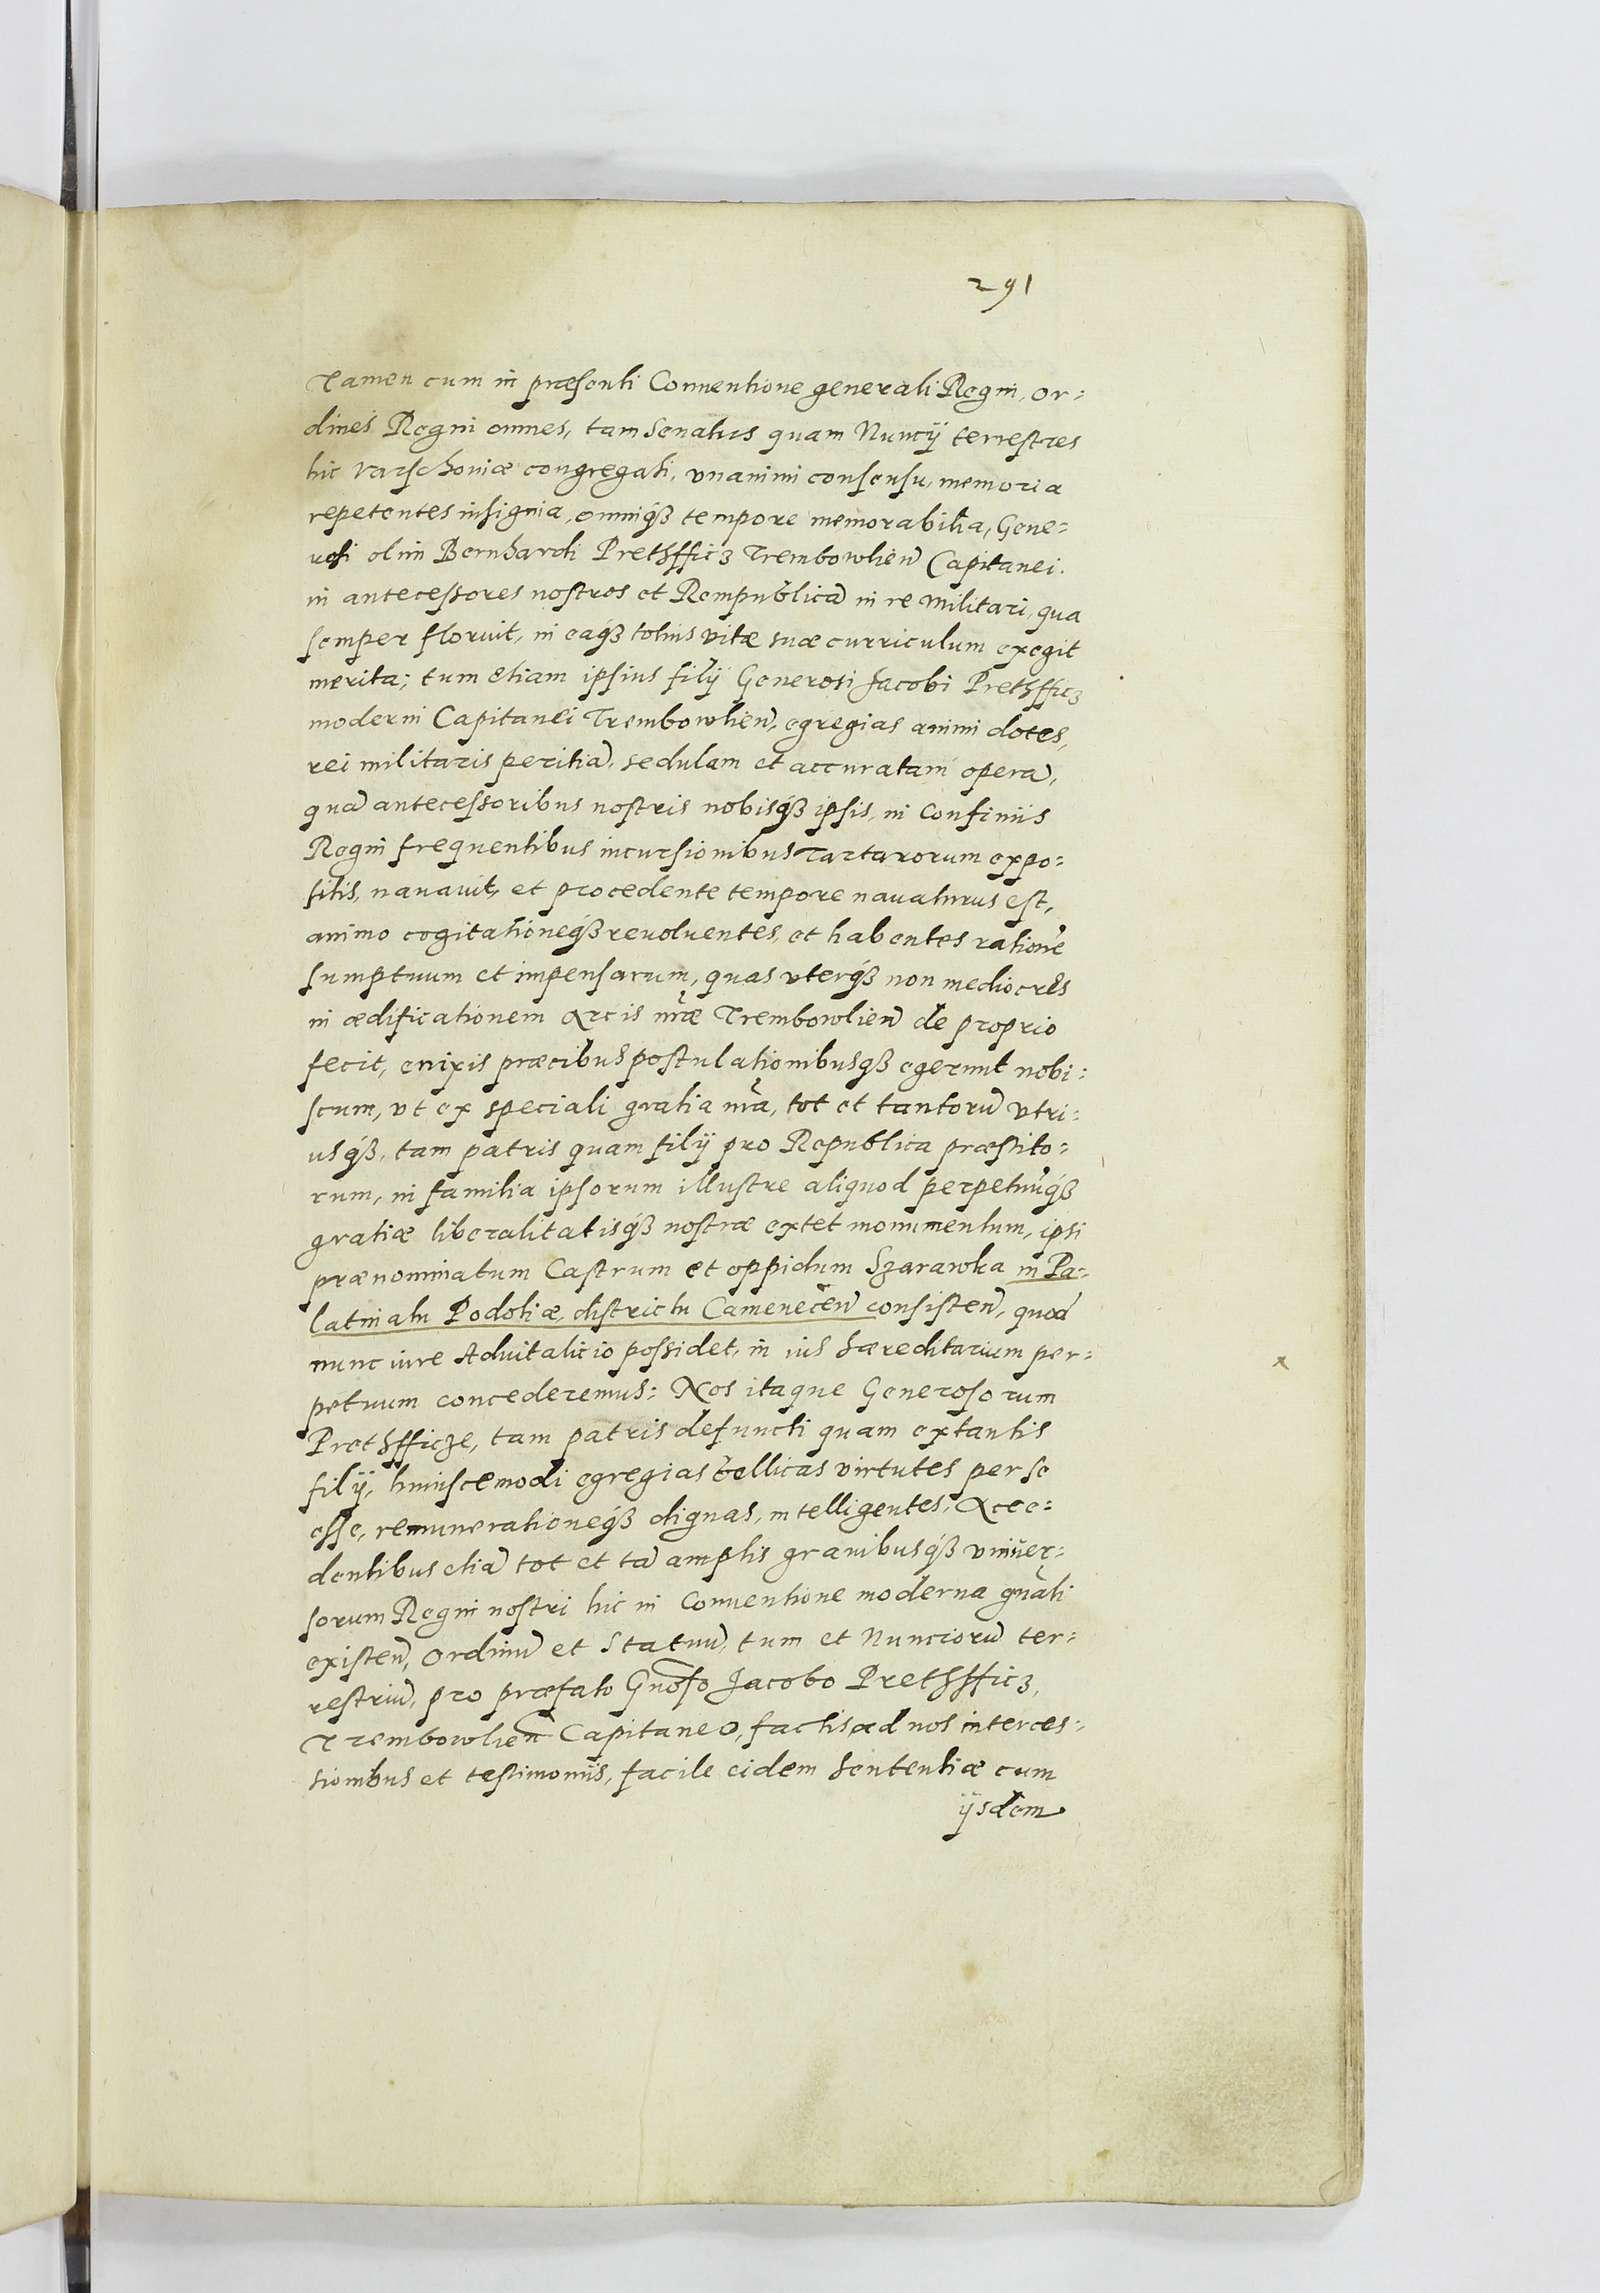 291
Tamen cum in præsenti Conuentione generali Regni, or=
dines Regni omnes, tam Senatus quam Nuncÿ terrestres
hic Varschoviæ congregati, vnanimi consensu, memoria
repetentes insignia, omniqꝫ tempore memorabilia, Gene=
rosi olim Bernhardi Prethfficz Trembowlien̄ Capitanei.
in antecessores nostros et Rempublicā in re militari, qua
semper floruit, in eaqꝫ totius vitæ suæ curriculum exegit
merita; tum etiam ipsius filÿ Generosi Jacobi Prethfficz
moderni Capitanei Trembowlien̄, egregias animi dotes,
rei militaris peritiā, sedulam et accuratam operā,
quā antecessoribus nostris nobisqꝫ ipsis, in Confinÿs
Regni frequentibus incursionibus Tartarorum expo=
sitis, nauauit, et procedente tempore nauaturus est,
animo cogitationeqꝫ reuoluentes, et habentes rationē
sumptuum et impensarum, quas vterqꝫ non mediocres
in ædificationem Arcis nr̄æ Trembowlien̄ de proprio
fecit, enixis præcibus postulationibusqꝫ egerunt nobi=
scum, vt ex speciali gratia nr̄a, tot et tantorū vtri=
usqꝫ, tam patris quam filÿ pro Republica præstito=
rum, in familia ipsorum illustre aliquod perpetuūqꝫ
gratiæ liberalitatisqꝫ nostræ extet monumentum, ipsi
prænominatum Castrum et oppidum Szarawka in Pa=
latinatu Podoliæ, districtu Camenecen̄ consisten̄, quod
nunc iure Aduitalicio possidet, in ius hæreditarium per=
petuum concederemus: Nos itaque Generosorum
Prethfficze, tam patris defuncti quam extantis
filÿ, huiuscemodi egregias bellicas virtutes per se
esse, remunerationeqꝫ dignas, intelligentes, Acce=
dentibus etiā tot et tā amplis grauibusqꝫ vniuer=
sorum Regni nostri hic in Conuentione moderna gn̄ali
existen̄, Ordinū et Statuū, tum et Nunciorū ter=
restriū, pro præfato Gn̄oso Jacobo Prethfficz,
Trembowlien̄ Capitaneo, factis ad nos interces=
sionibus et testimonÿs, facile eidem sententiæ cum
ÿsdem
x